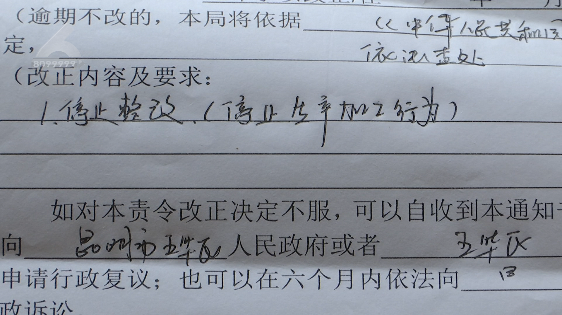 （逾期不改的，本局将依据《中华人民共和国
定，依法查处
（改正内容及要求：
1、停止整改、（停止生产加工行为）
如对本责令改正决定不服，可以自收到本通知
向昆明市五华区人民政府或者五华区
申请行政复议；也可以在六个月内依法向
政诉讼